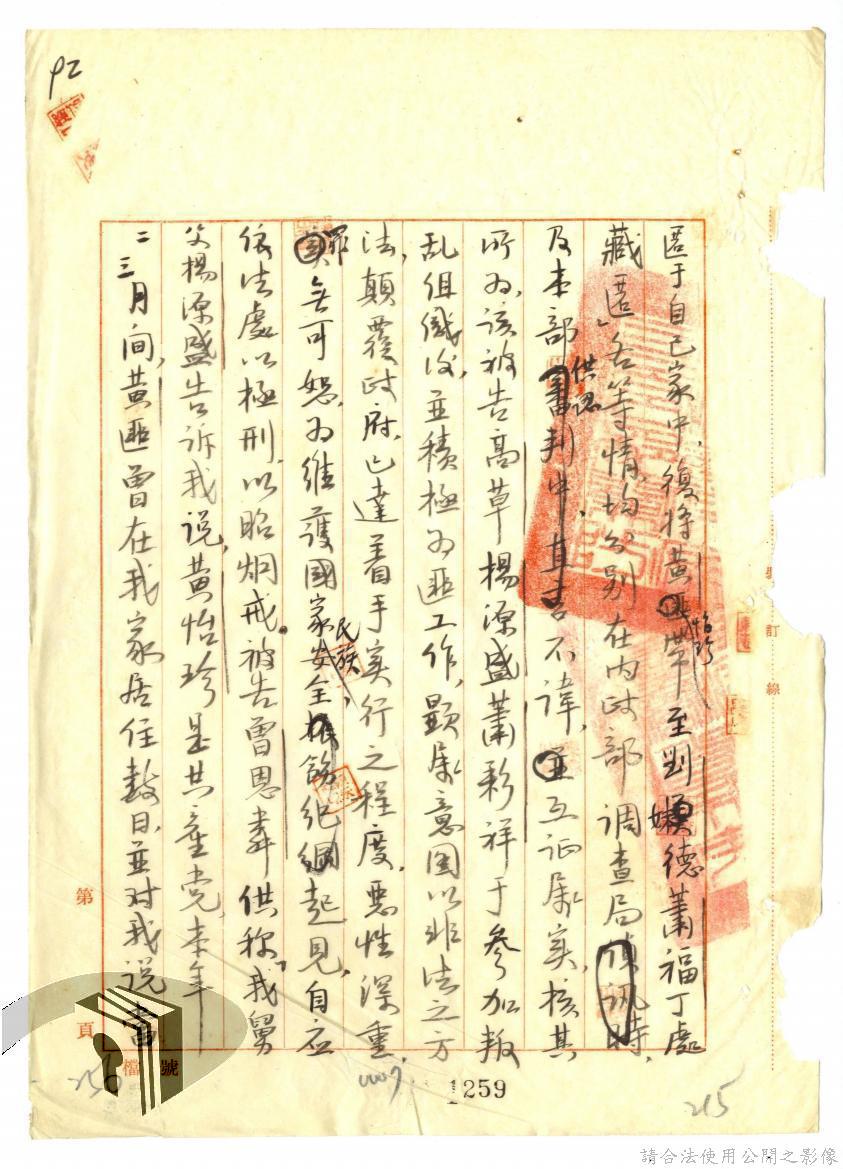 匿于自己家中,復將黃怡珍帶至劉嫩德蕭福丁處
藏匿」各等情,均分別在內政部調查局偵訊時,
及本部審判中供認,直言不諱,互証屬实,核其
所為,該被告高草楊源盛蕭彩祥于參加叛
乱组織後,並積極為匪工作,顯屬意圖以非法之方
法,顛覆政府,已達着手实行之程度,惡性深重,
罪無可恕,為維護國家民族安全,紀綱起見,自应
依法處以極刑,以昭炯戒。被告曾恩彝供称「我舅
父楊源盛告訴我説,黃怡珍是共產党,本年
二三月间,黃匪曾在我家居住数日,並对我說當
裝訂線
第
頁
檔號
92
256
1259
215
請合法使用公開之影像